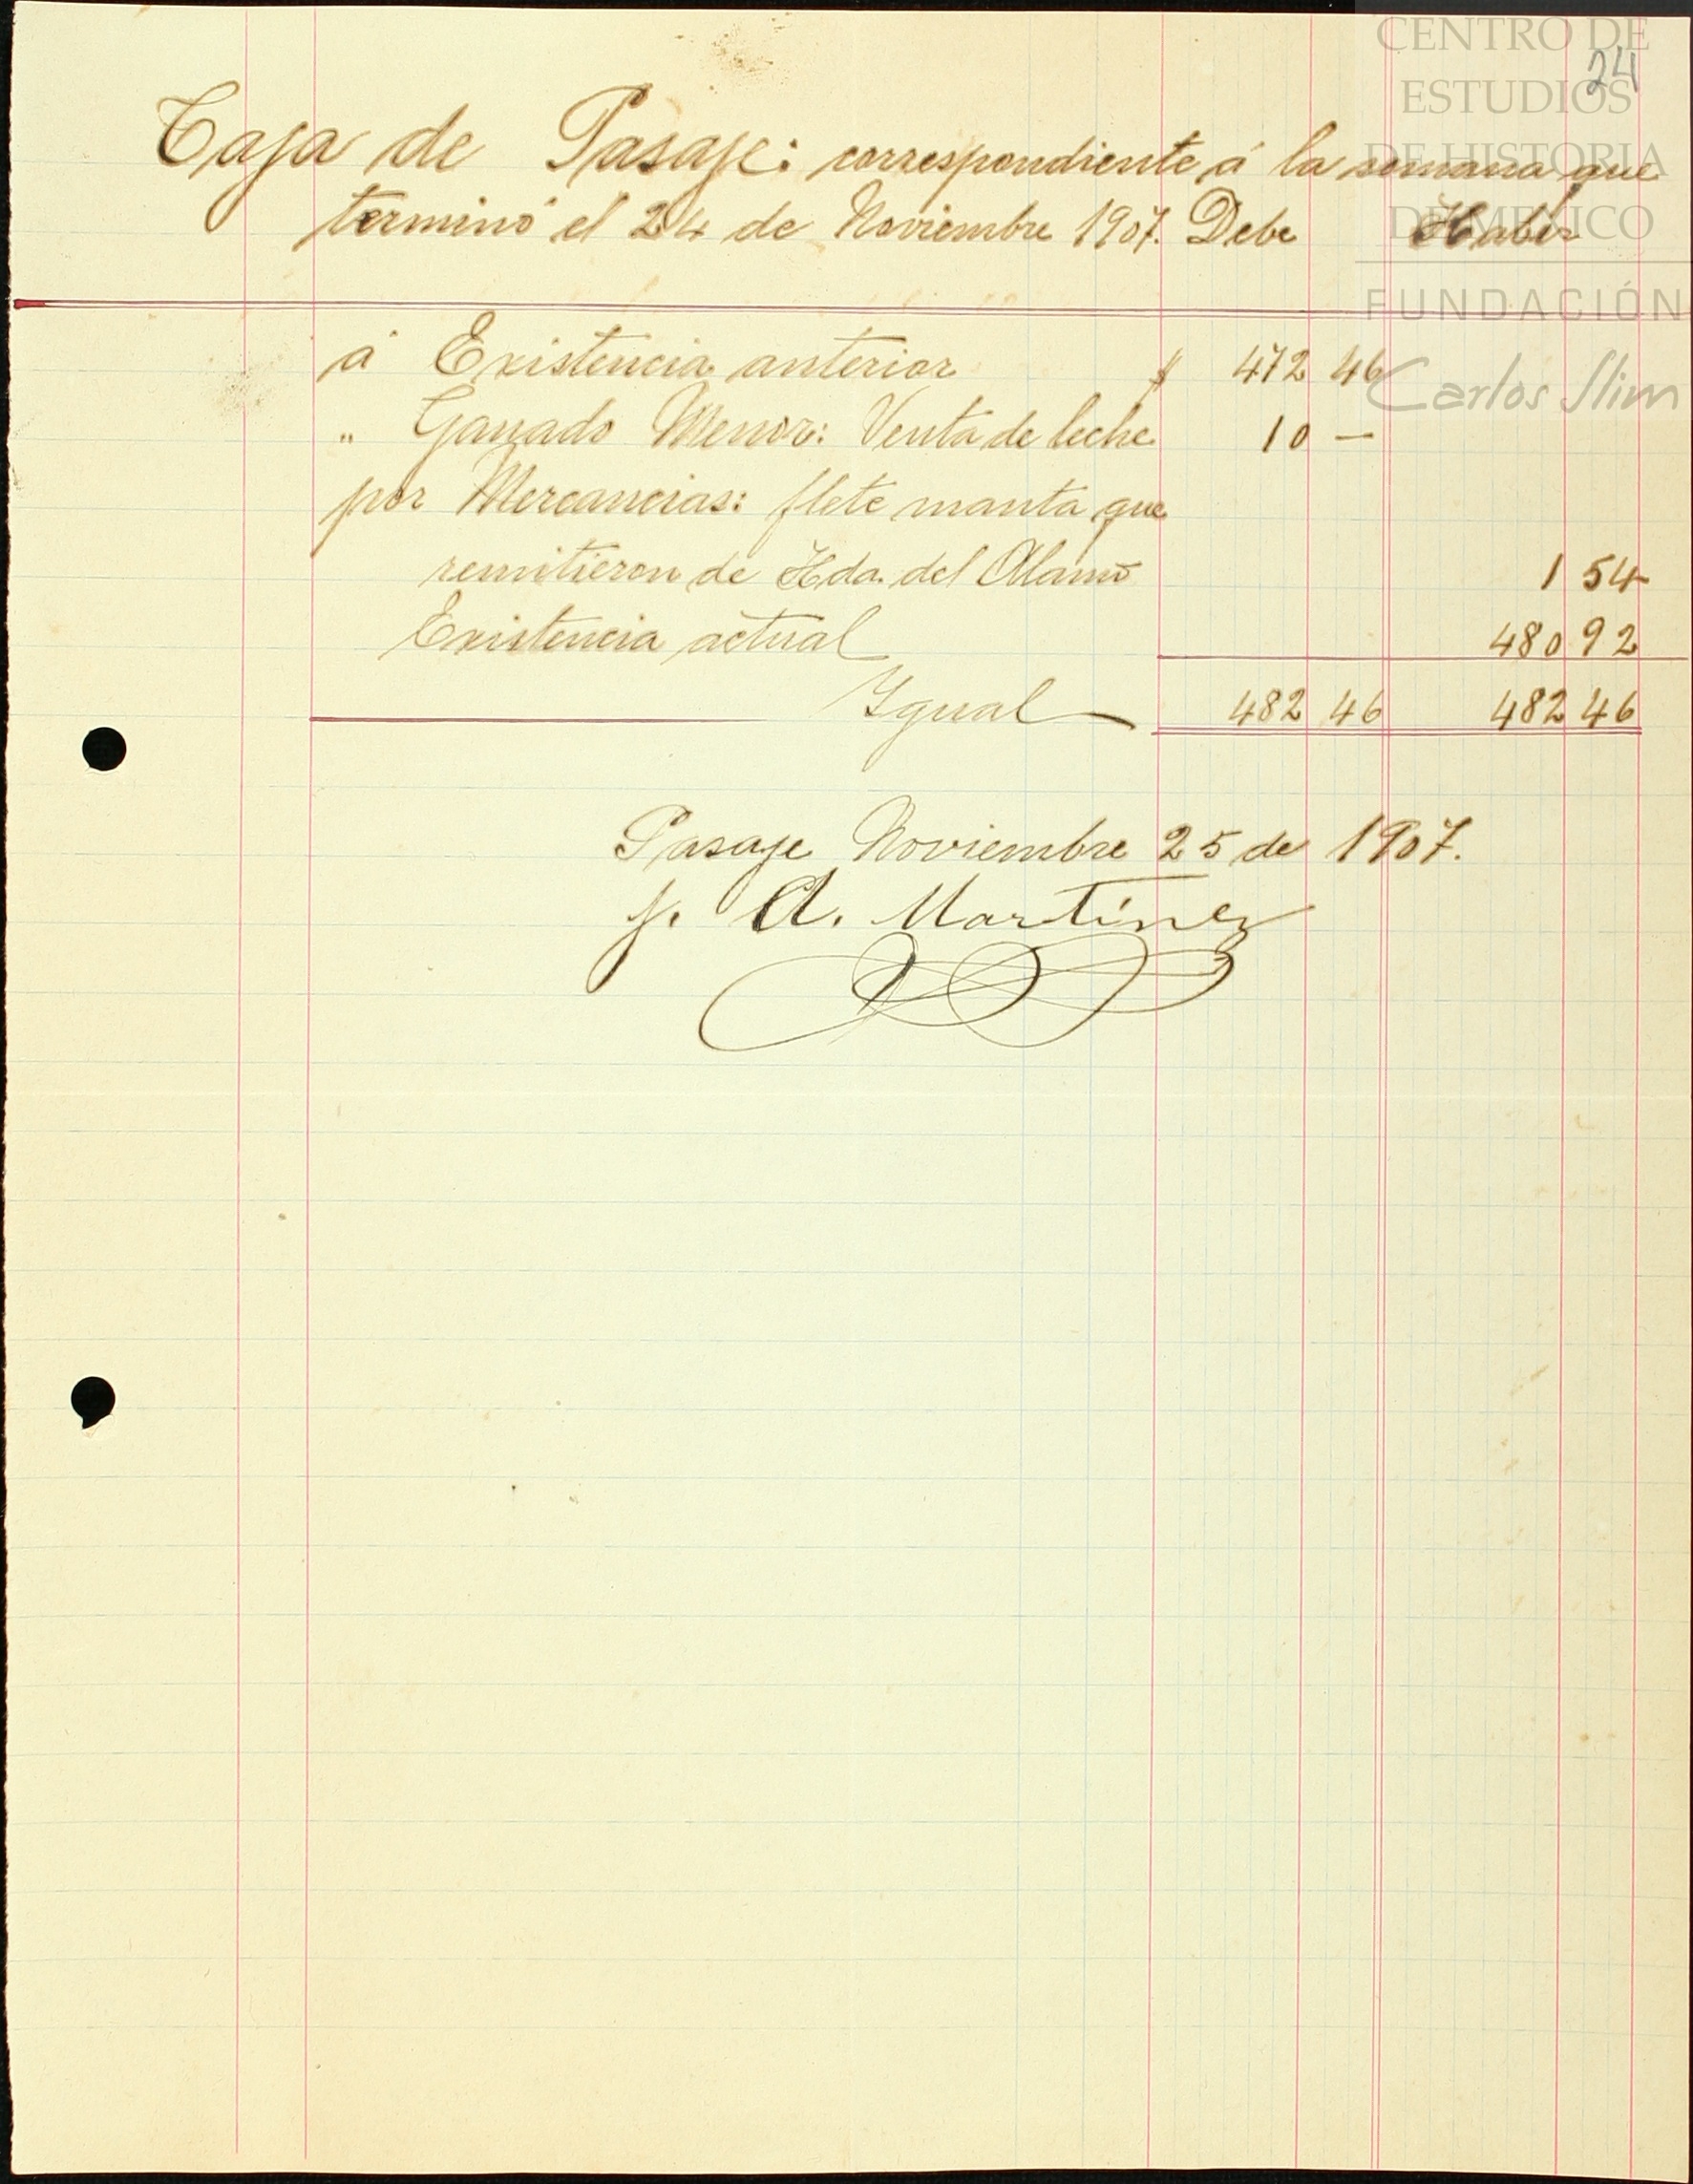 CENTRO DE
ESTUDIOS
DE HISTORIA
DE MÉXICO
FUNDACIÓN
Carlos Slim
24
Caja de Pasaje: correspondiente á la semana que
terminó el 24 de Noviembre 1907. Debe Haber
á Existencia anterior $ 472 46
" Ganado Menor: Venta de leche 10 —
por Mercancias: flete manta que
remitieron de Hda. del Alamo 1 54
Existencia actual 480 92
Igual 482 46 482 46
Pasaje Noviembre 25 de 1907.
p. A. Martínez